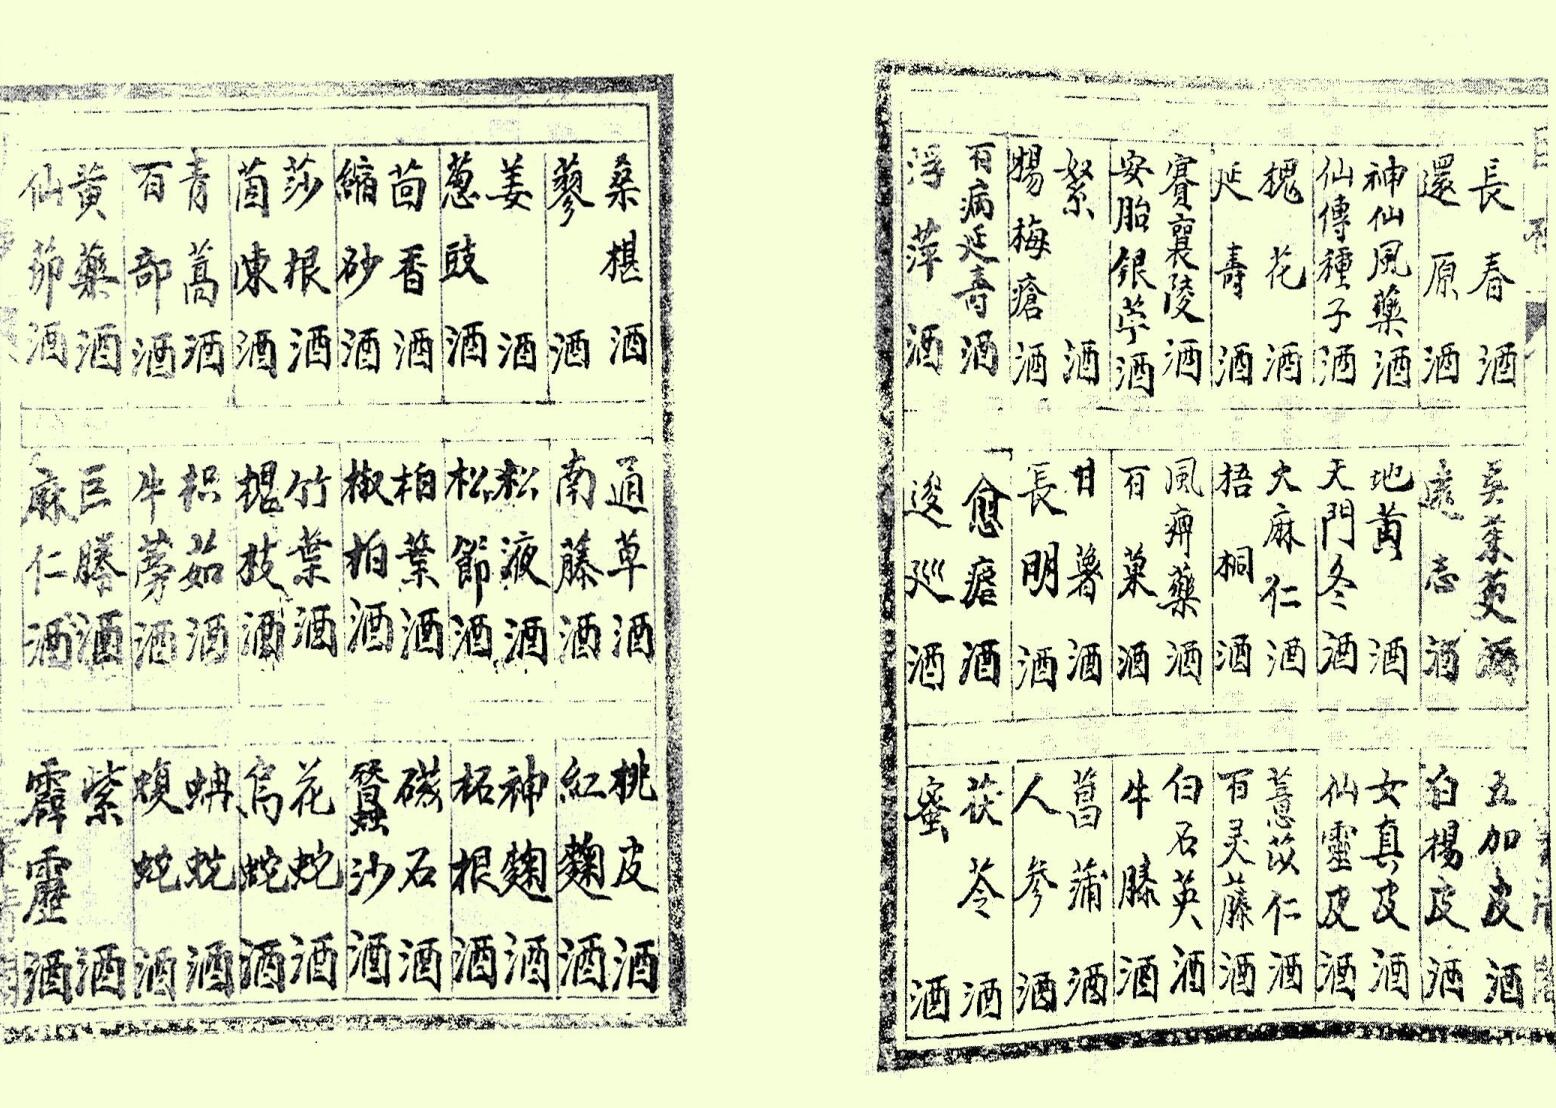 長春酒
還原酒
神仙風藥酒
仙傳種子酒
槐花酒
延壽酒
賽襄陵酒
安胎銀苧酒
絮酒
楊梅瘡酒
百病延壽酒
浮萍酒
吳茱萸酒
遠志酒
地黃酒
天門冬酒
大麻仁酒
梧桐酒
風痹藥酒
百菓酒
甘薯酒
長明酒
愈瘧酒
逡巡酒
五加皮酒
白楊皮酒
女真皮酒
仙靈皮酒
薏苡仁酒
百灵藤酒
白石英酒
牛膝酒
菖蒲酒
人參酒
茯苓酒
蜜酒
桑椹酒
蓼酒
姜酒
蔥豉酒
茴香酒
縮砂酒
莎根酒
茵陳酒
青蒿酒
百部酒
黃藥酒
仙茆酒
通草酒
南藤酒
松液酒
松節酒
柏葉酒
椒柏酒
竹葉酒
槐枝酒
枳茹酒
牛蒡酒
巨勝酒
麻仁酒
桃皮酒
紅麴酒
神麴酒
柘根酒
磁石酒
蠶沙酒
花蛇酒
烏蛇酒
蚺蛇酒
蝮蛇酒
紫酒
霹靂酒